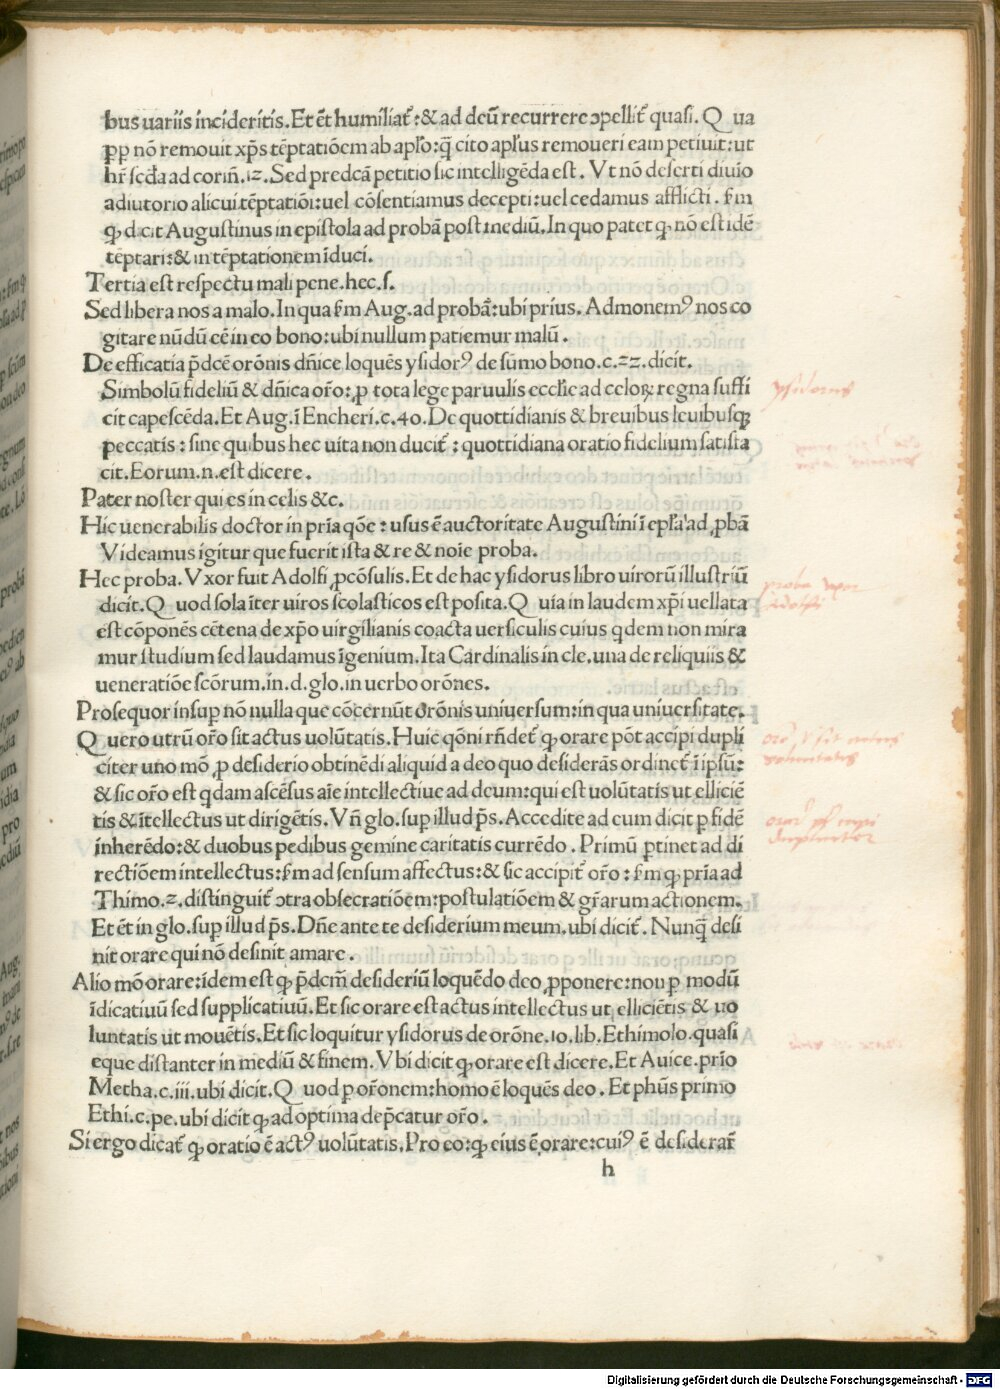 bus uariis incideritis.Et ēt humiliat᷑:& ad deū recurrere ↄpellit᷑ quasi.Q ua
ꝓp nō remouit xp̄s tēptatiōem ab apl̄o:q̄ cito apl̄us remoueri eam petiuit:ut
hr̄ scd̄a ad corin̄.12.Sed predcā petitio sic intelligēda est.Vt nō deserti diuio
adiutorio alicui tēptatiōi:uel cōsentiamus decepti:uel cedamus afflicti.ẜm
ꝙ dicit Augustinus in epistola ad probā post mediū.In quo patet ꝙ nō est idē
tēptari:& in tēptationem īduci.
Tertia est respectu mali pene.hec.s.
Sed libera nos a malo.In qua ẜm Aug.ad probā:ubi prius.Admonemꝰ nos co
gitare nūdū cē in eo bono:ubi nullum patiemur malū.
De efficatia p̄dcē orōnis dn̄ice loquēs ysidorꝰ de sūmo bono.c.22.dicit.
Simbolū fideliū & dn̄ica or̄o:ꝓ tota lege paruulis eccl̄ie ad celoꝝ regna suffi
cit capescēda.Et Aug.ī Encheri.c.40.De quottidianis & breuibus leuibusqꝫ
peccatis:sine quibus hec uita non ducit᷑:quottidiana oratio fidelium satisfa
cit.Eorum.n.est dicere.
Pater noster qui es in celis &c.
Hic uenerabilis doctor in pr̄ia qōe:usus ē auctoritate Augustini ī epl̄a ad ꝓbā
Videamus igitur que fuerit ista & re & noīe proba.
Hec proba.Vxor fuit Adolfi ꝓcōsulis.Et de hac ysidorus libro uirorū illustriū
dicit.Q uod sola īter uiros scolasticos est posita.Q uia in laudem xp̄i uellata
est cōponēs cētena de xp̄o uirgilianis coacta uersiculis cuius qdem non mira
mur studium sed laudamus īgenium.Ita Cardinalis in cle.una de reliquiis &
ueneratiōe scōrum.in.d.glo.in uerbo orōnes.
Prosequor insuꝑ nō nulla que cōcernūt orōnis uniuersum:in qua uniuersitate.
Q uero utrū or̄o sit actus uolūtatis.Huic qōni rn̄det᷑ ꝙ orare pōt accipi dupli
citer uno mō ꝓ desiderio obtinēdi aliquid a deo quo desiderās ordinet᷑ ī ipsū:
& sic or̄o est qdam ascēsus aīe intellectiue ad deum:qui est uolūtatis ut elliciē
tis & ītellectus ut dirigētis.Vn̄ glo.suꝑ illud ps̄.Accedite ad eum dicit ꝑ fidē
inherēdo:& duobus pedibus gemine caritatis currēdo.Primū ꝑtinet ad di
rectiōem intellectus:ẜm ad sensum affectus:& sic accipit᷑ or̄o:ẜm ꝙ pr̄ia ad
Thimo.2.distinguit᷑ ↄtra obsecratiōem:postulatiōem & gr̄arum actionem.
Et ēt in glo.suꝑ illud ps̄.Dn̄e ante te desiderium meum.ubi dicit᷑.Nunq̄ desi
nit orare qui nō desinit amare.
Alio mō orare:idem est ꝙ p̄dcm̄ desideriū loquēdo deo ꝓponere:non ꝑ modū
īdicatiuū sed supplicatiuū.Et sic orare est actus intellectus ut elliciētis & uo
luntatis ut mouētis.Et sic loquitur ysidorus de orōne.10.lib.Ethimolo.quasi
eque distanter in mediū & finem.Vbi dicit ꝙ orare est dicere.Et Auice.prīo
Metha.c.iii.ubi dicit.Q uod ꝑ or̄onem:homo ē loquēs deo.Et phūs primo
Ethi.c.pe.ubi dicit ꝙ ad optima dep̄catur or̄o.
Si ergo dicat᷑ ꝙ oratio ē actꝰ uolūtatis.Pro eo:ꝙ eius ē orare:cuiꝰ ē desiderar̄
h
ysidorus
proba uxor
Adolfi
Digitalisierung gefördert durch die Deutsche Forschungsgemeinschaft - DFG